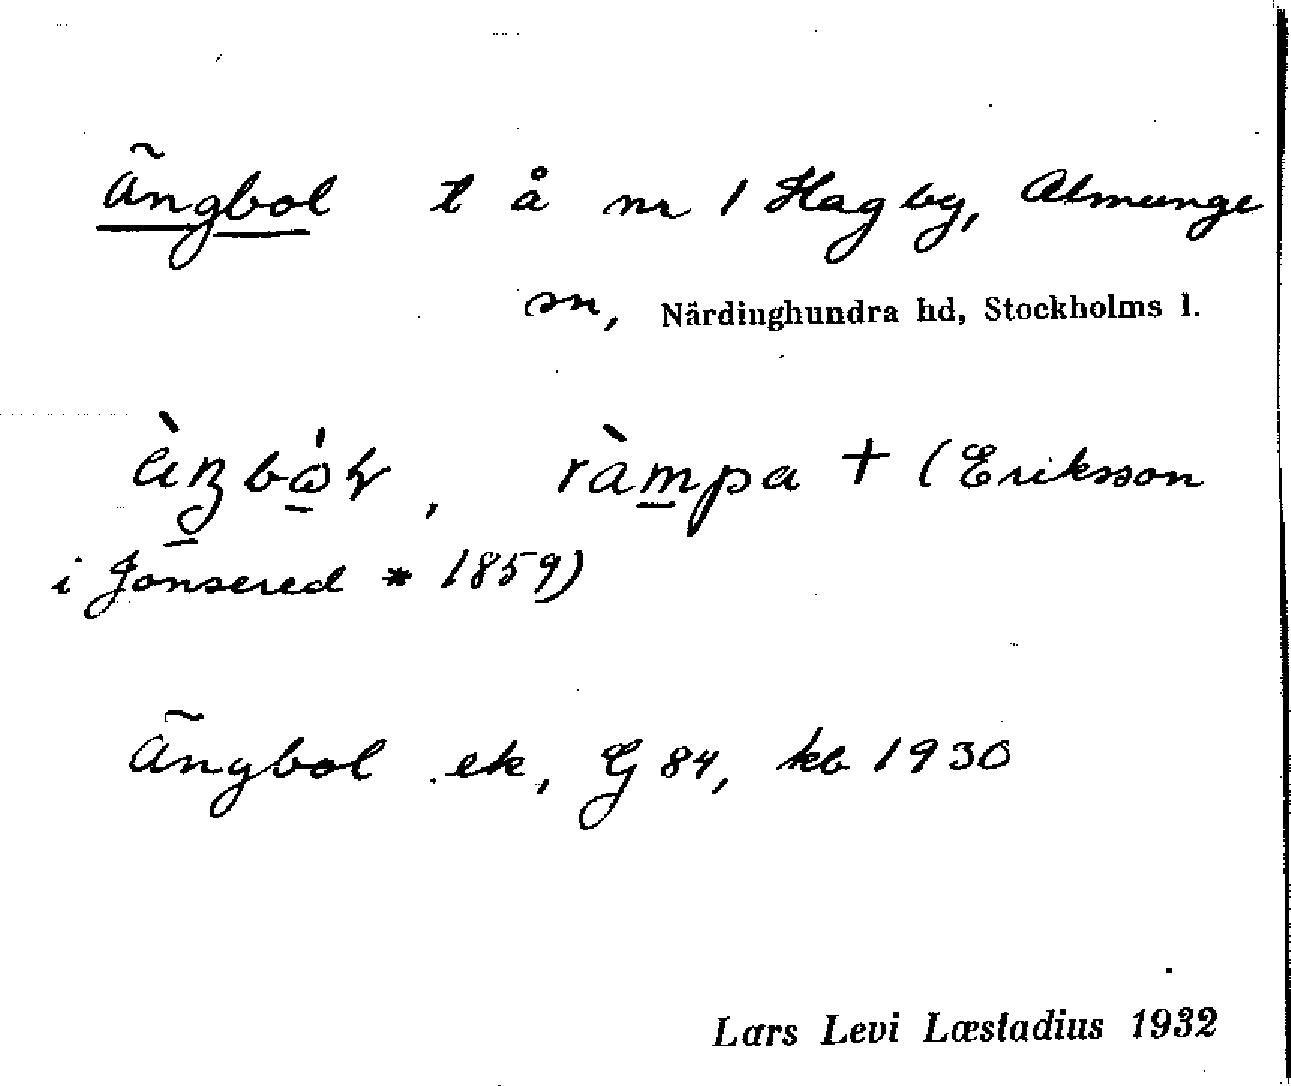 Ängbol t å nr 1 Hagby, Almunge
sn, Närdinghundra hd, Stockholms l.
rampa + (Eriksson
i Jonsered * 1859)
Ängbol ek, G 84, kb 1930
Lars Levi Læstadius 1932